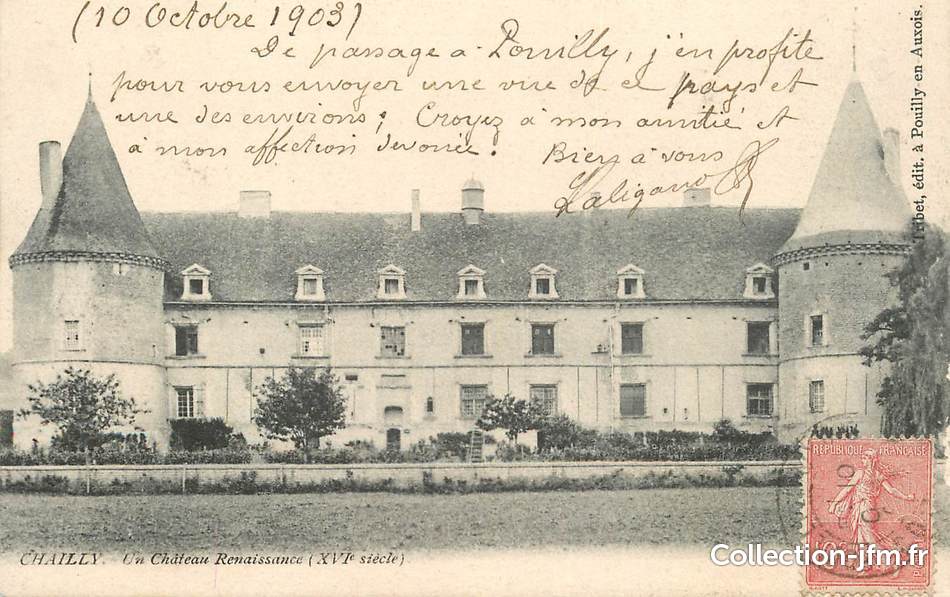 (10 Octobre 1903)
De passage à Pouilly, j'en profite
pour vous envoyer une vue de ce pays et
une des environs; Croyez à mon amitié et
à mon affection dévouée. Bien à vous
CHAILLY. Un Château Renaissance (XVIe siècle)
édit. à Pouilly-en-Auxois.
REPUBLIQUE FRANÇAISE
Collection-jfm.fr